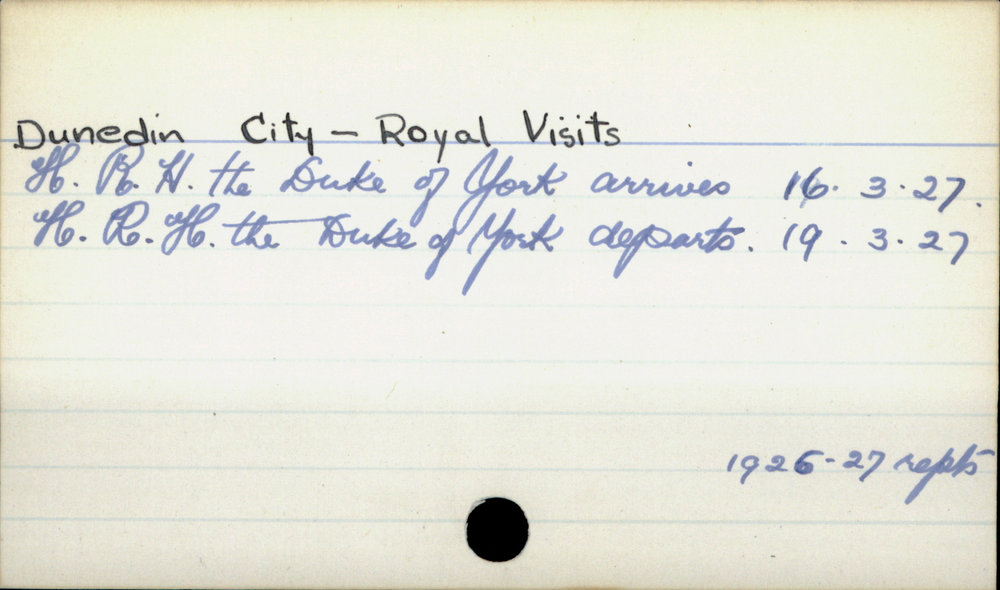 Dunedin City - Royal Visits
H. R. H. the Duke of York arrives 16. 3. 27.
H. R. H. the Duke of York departs. 19. 3. 27
1926-27 repts